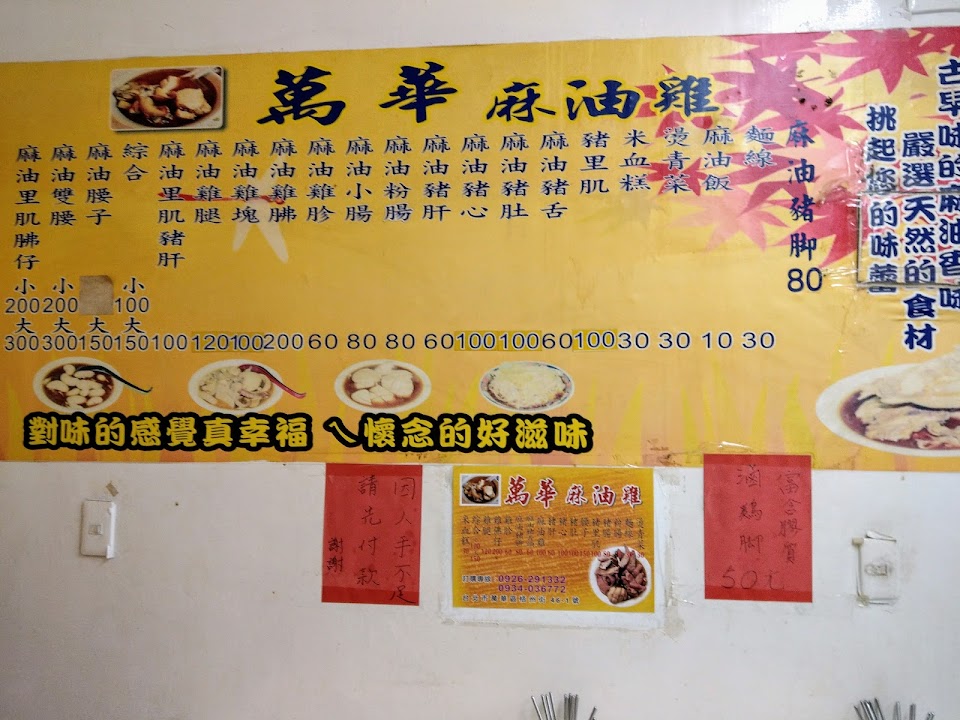 萬華麻油雞
古早味的麻油香味
嚴選天然的食材
挑起您的味蕾
麻油豬腳 80
麵線 30
麻油飯 10
燙青菜 30
米血糕 30
豬里肌 100
麻油豬舌 60
麻油豬肚 100
麻油豬心 100
麻油豬肝 60
麻油粉腸 80
麻油小腸 80
麻油雞胗 60
麻油雞胇 200
麻油雞塊 100
麻油雞腿 120
麻油里肌豬肝 100
綜合 小100 大150
麻油腰子 大150
麻油雙腰 小200 大300
麻油里肌胇仔 小200 大300
對味的感覺真幸福 ㄟ懷念的好滋味
因人手不足
請先付款
謝謝
萬華麻油雞
0926-291332
0934-036772
台北市萬華區梧州街 46-1 號
富含膠質
滷鷄腳
50元